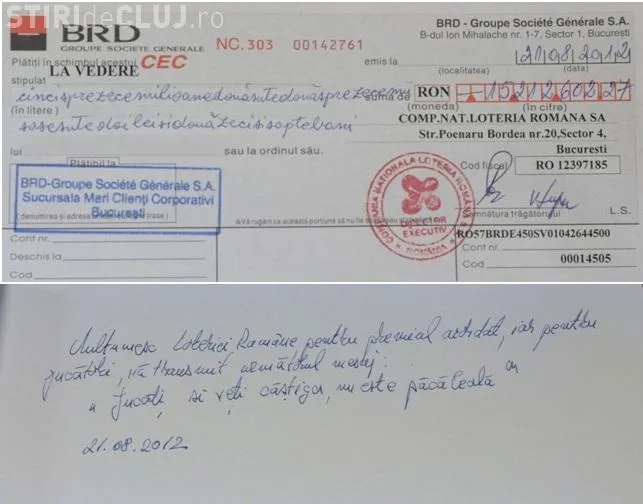 STIRIdeCLUJ.ro
BRD
GROUPE SOCIETE GENERALE
NC. 303 00142761
BRD - Groupe Société Générale S.A.
B-dul Ion Mihalache nr. 1-7, Sector 1, Bucuresti
Plătiți în schimbul acestui CEC
emis la
21 08 2012
(localitatea) (data)
stipulat LA VEDERE
cincisprezecemilioanedouăsutedouăsprezecemii
suma de RON 15212602,27
(în litere) (moneda) (în cifre)
sasesutedoileisidouăzecisisaptebani
COMP.NAT.LOTERIA ROMANA SA
Str.Poenaru Bordea nr.20,Sector 4,
Bucuresti
lui sau la ordinul său.
Plătibil la
Cod fiscal RO 12397185
BRD-Groupe Société Générale S.A.
Sucursala Mari Clienți Corporativi
București
(denumirea și adresa
trase)
Vă rugăm ca această porțiune să nu fie
COMPANIA NATIONALA LOTERIA ROMANA
DIRECTOR
EXECUTIV
ROMANIA
Semnătura trăgătorului L.S.
Cont nr.
RO57BRDE450SV01042644500
Deschis la
Cont nr.
Cod
Cod 00014505
Multumesc Loteriei Române pentru premiul acordat, iar pentru
jucători, vă transmit următorul mesaj:
" Jucați si veți câștiga, nu este păcăleală "
21.08.2012